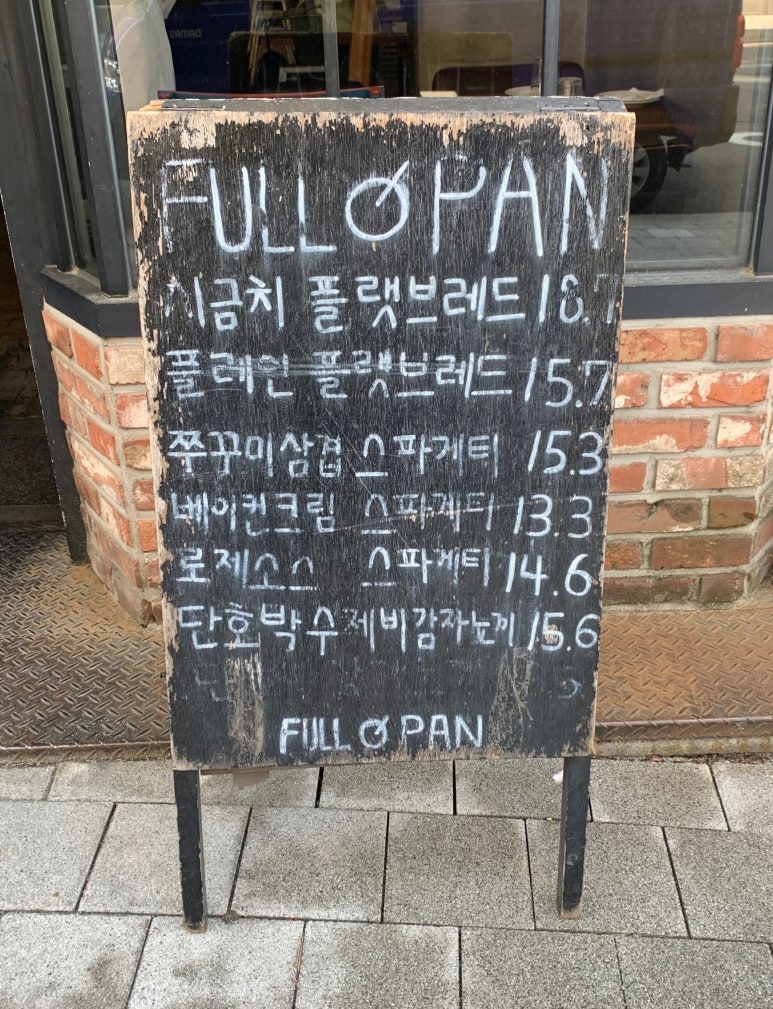 FULL Ø PAN
시금치 플랫브레드 18.7
플레인 플랫브레드 15.7
쭈꾸미삼겹 스파게티 15.3
베이컨크림 스파게티 13.3
로제소스 스파게티 14.6
단호박수제비감자뇨끼 15.6
FULL Ø PAN
DAMAS